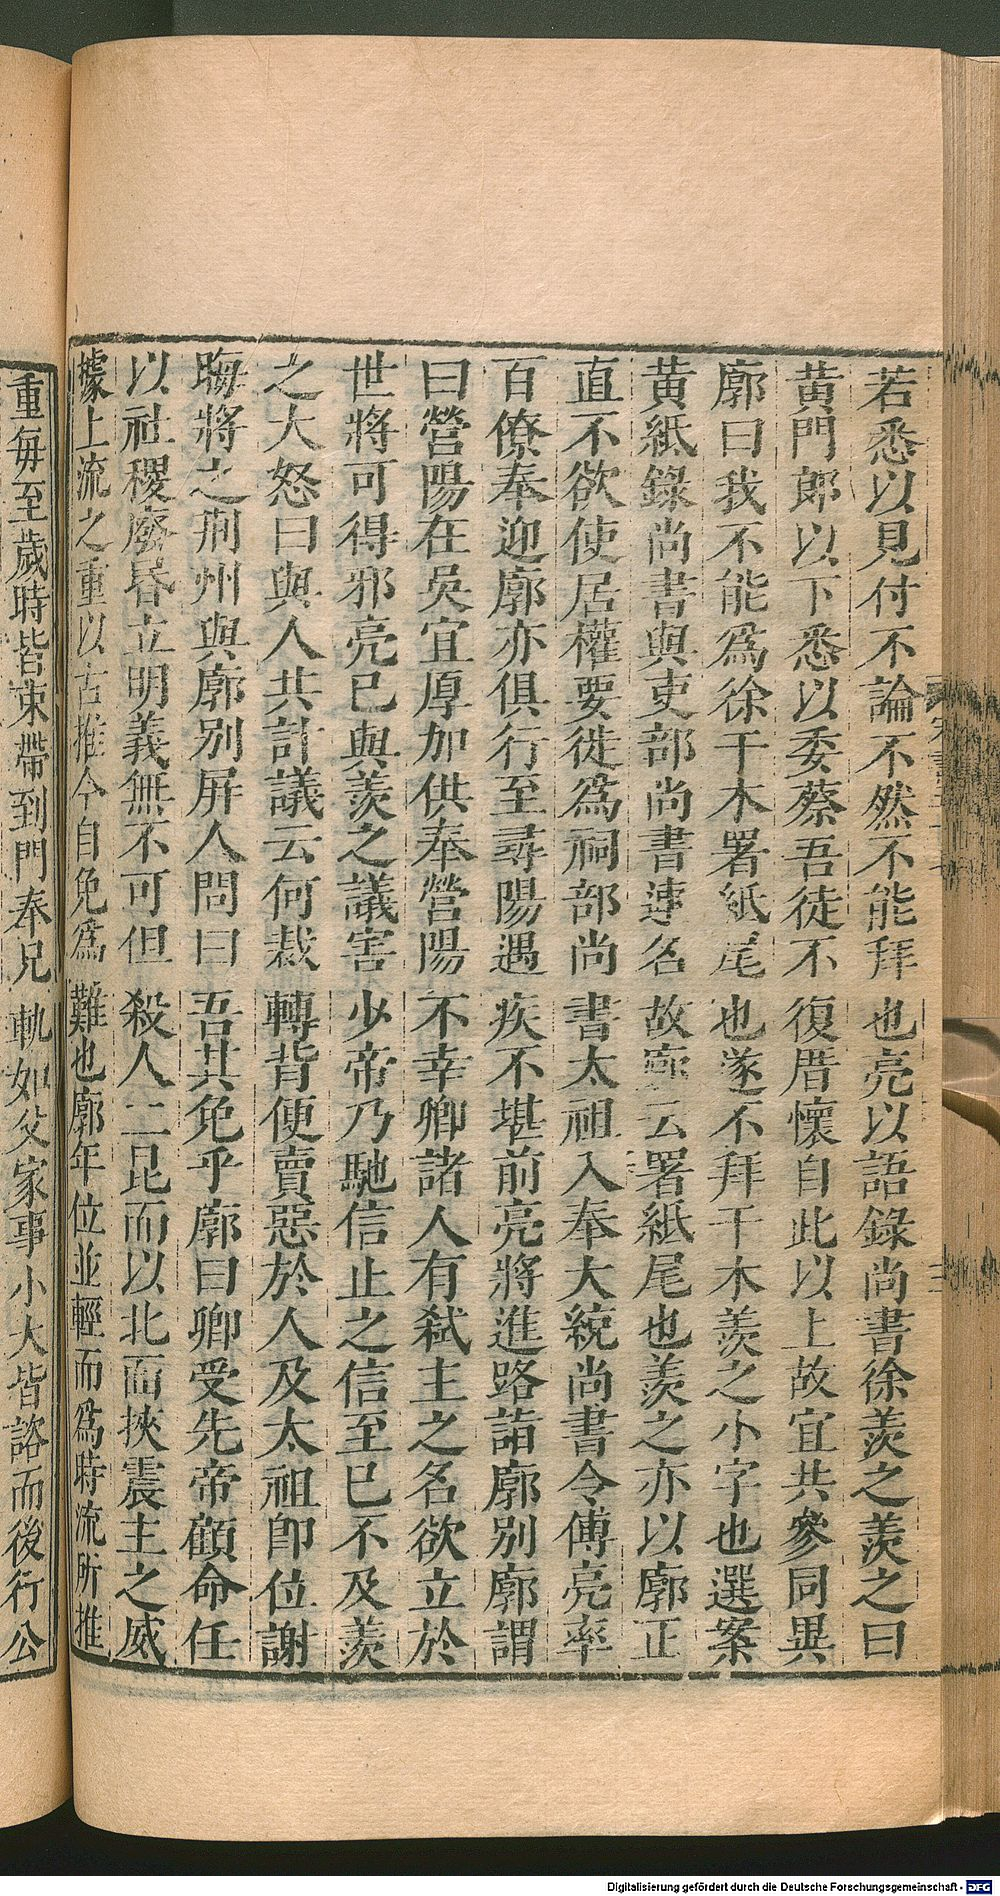 若悉以見付不論不然不能拜也亮以語錄尚書徐羨之羨之曰
黃門郎以下悉以委蔡吾徒不復厝懷自此以上故宜共參同異
廓曰我不能爲徐干木署紙尾也遂不拜干木羨之小字也選案
黃紙錄尚書與吏部尚書連名故廓云署紙尾也羨之亦以廓正
直不欲使居權要徙爲祠部尚書太祖入奉大統尚書令傅亮率
百僚奉迎廓亦俱行至尋陽遇疾不堪前亮將進路詣廓別廓謂
曰營陽在吳宜厚加供奉營陽不幸卿諸人有弒主之名欲立於
世將可得邪亮已與羨之議害少帝乃馳信止之信至已不及羨
之大怒曰與人共計議云何裁轉背便賣惡於人及太祖即位謝
晦將之荊州與廓別屏人問曰吾其免乎廓曰卿受先帝顧命任
以社稷廢昏立明義無不可但殺人二昆而以北面挾震主之威
據上流之重以古推今自免爲難也廓年位並輕而爲時流所推
重每至歲時皆束帶到門奉兄軌如父家事小大皆諮而後行公
Digitalisierung gefördert durch die Deutsche Forschungsgemeinschaft - DFG